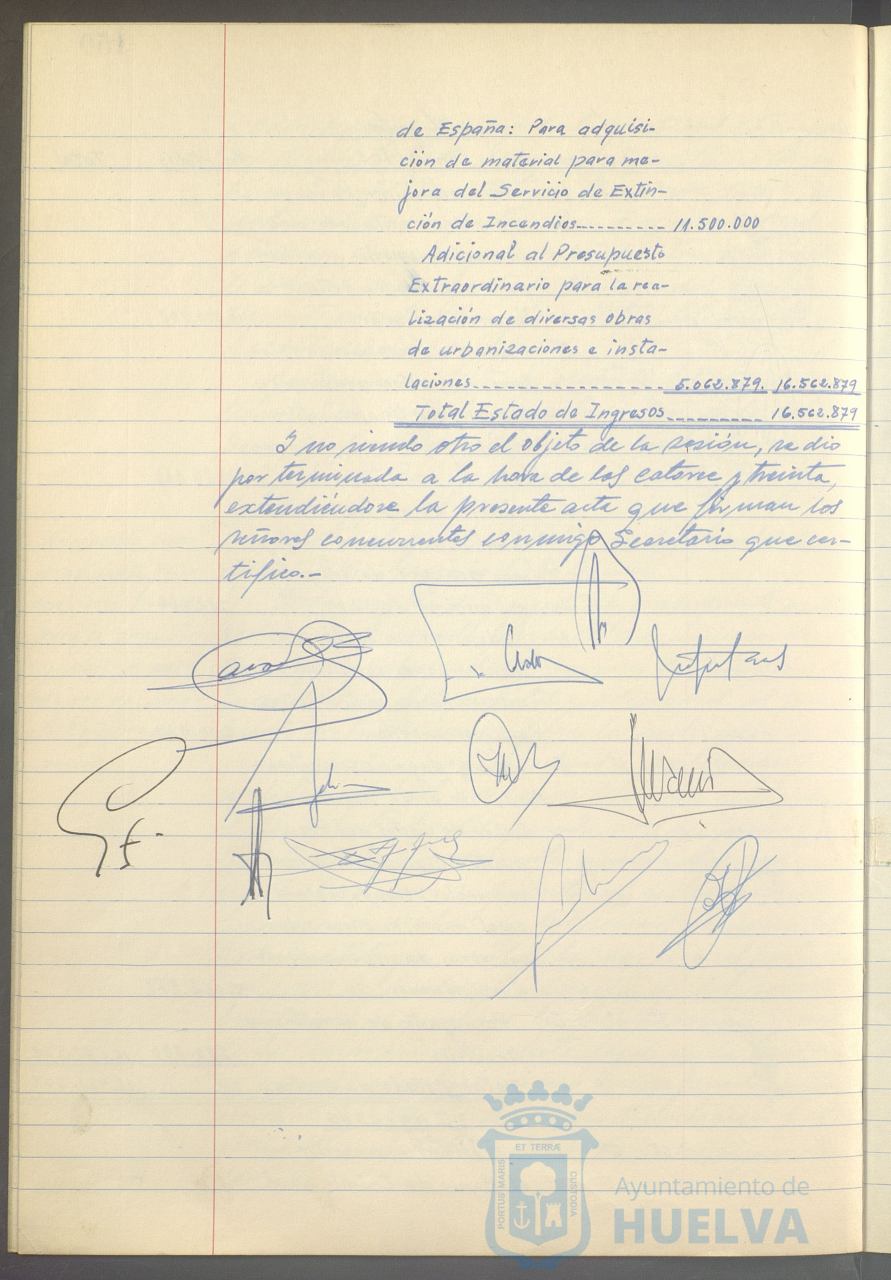 de España: Para adquisi-
ción de material para me-
jora del Servicio de Extin-
ción de Incendios---------- 11.500.000
Adicional al Presupuesto
Extraordinario para la rea-
lización de diversas obras
de urbanizaciones e insta-
laciones------------------ 5.062.879. 16.562.879
Total Estado de Ingresos--------- 16.562.879
Y no siendo otro el objeto de la sesión, se dio
por terminada a la hora de las catorce y treinta,
extendiéndose la presente acta que firman los
señores concurrentes conmigo Secretario que cer-
tifico.-
ET TERRÆ
PORTUS MARIS
CUSTODIA
Ayuntamiento de
HUELVA